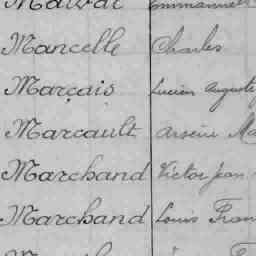 Mancelle Charles
Marçais Lucien Auguste
Marcault Arsène
Marchand Victor Jean
Marchand Louis